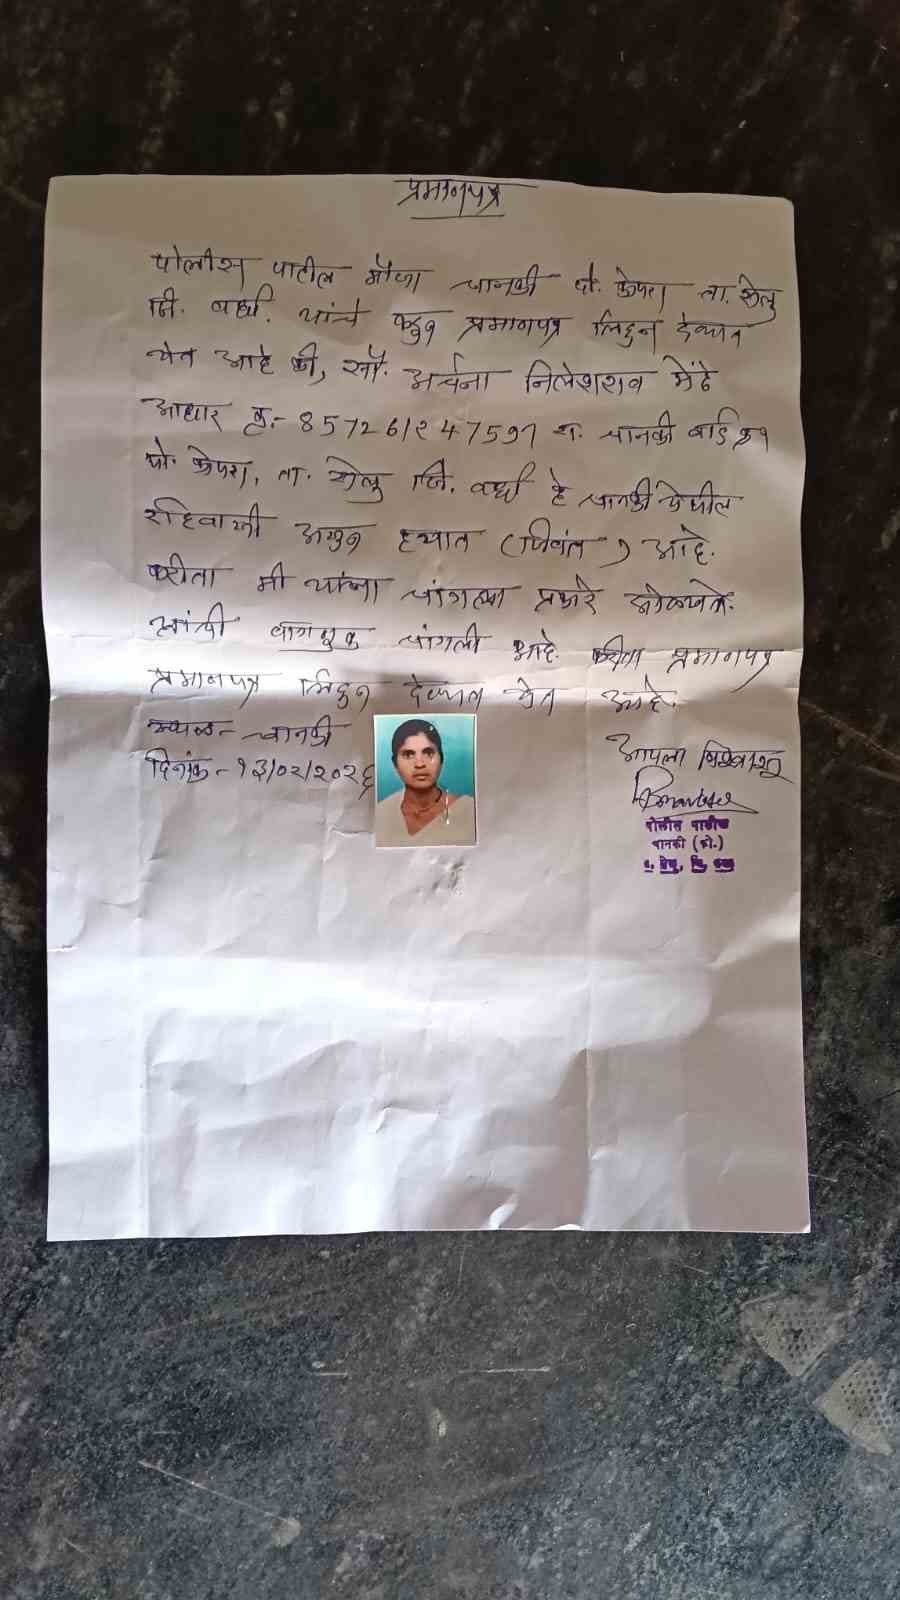 प्रमाणपत्र
पोलीस पाटील मौजा चानकी पो. कोपरा ता. सेलु
जि. वर्धा. यांचे कडुन प्रमाणपत्र लिहुन देण्यात
येत आहे की, सौ. अर्चना निलेशराव मेंढे
आधार क्र.- 857261247597 रा. चानकी वार्ड क्र १
पो. कोपरा, ता. सेलु जि. वर्धा हे चानकी येथील
रहिवासी असुन हयात (जिवंत) आहे.
करीता मी यांना चांगल्या प्रकारे ओळखतो.
त्यांची वागणुक चांगली आहे. करीता प्रमाणपत्र
प्रमाणपत्र लिहुन देण्यात येत आहे.
स्थळ - चानकी
दिनांक - १३/०२/२०२६
आपला विश्वासू
पोलीस पाटील
चानकी (को.)
ता. सेलु, जि. वर्धा